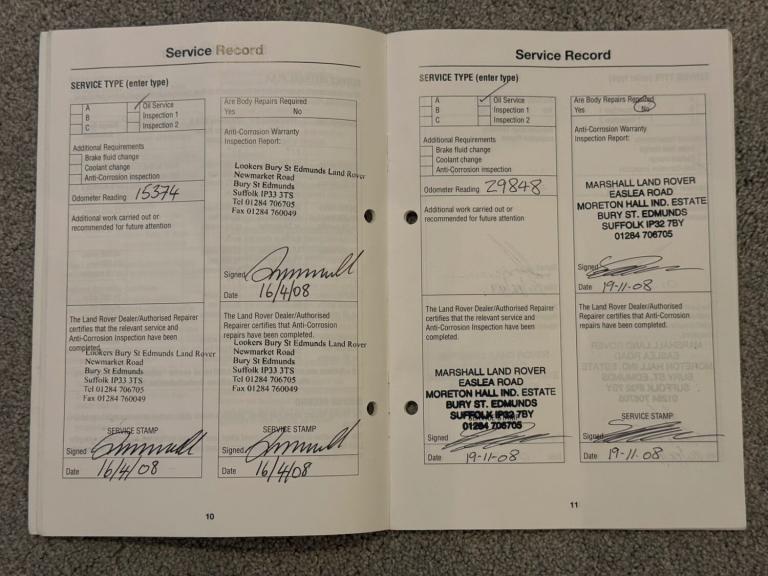 Service Record
SERVICE TYPE (enter type)
A Oil Service
B Inspection 1
C Inspection 2
Additional Requirements
Brake fluid change
Coolant change
Anti-Corrosion inspection
Odometer Reading 15374
Additional work carried out or
recommended for future attention
Are Body Repairs Required
Yes No
Anti-Corrosion Warranty
Inspection Report:
Lookers Bury St Edmunds Land Rover
Newmarket Road
Bury St Edmunds
Suffolk IP33 3TS
Tel 01284 706705
Fax 01284 760049
Signed
Date 16/4/08
The Land Rover Dealer/Authorised Repairer
certifies that the relevant service and
Anti-Corrosion Inspection have been
completed.
Lookers Bury St Edmunds Land Rover
Newmarket Road
Bury St Edmunds
Suffolk IP33 3TS
Tel 01284 706705
Fax 01284 760049
SERVICE STAMP
Signed
Date 16/4/08
The Land Rover Dealer/Authorised
Repairer certifies that Anti-Corrosion
repairs have been completed.
Lookers Bury St Edmunds Land Rover
Newmarket Road
Bury St Edmunds
Suffolk IP33 3TS
Tel 01284 706705
Fax 01284 760049
SERVICE STAMP
Signed
Date 16/4/08
10
Service Record
SERVICE TYPE (enter type)
A Oil Service
B Inspection 1
C Inspection 2
Additional Requirements
Brake fluid change
Coolant change
Anti-Corrosion inspection
Odometer Reading 29848
Additional work carried out or
recommended for future attention
Are Body Repairs Required
Yes No
Anti-Corrosion Warranty
Inspection Report:
MARSHALL LAND ROVER
EASLEA ROAD
MORETON HALL IND. ESTATE
BURY ST. EDMUNDS
SUFFOLK IP32 7BY
01284 706705
Signed
Date 19-11-08
The Land Rover Dealer/Authorised Repairer
certifies that the relevant service and
Anti-Corrosion Inspection have been
completed.
MARSHALL LAND ROVER
EASLEA ROAD
MORETON HALL IND. ESTATE
BURY ST. EDMUNDS
SUFFOLK IP32 7BY
01284 706705
Signed
Date 19-11-08
The Land Rover Dealer/Authorised
Repairer certifies that Anti-Corrosion
repairs have been completed.
SERVICE STAMP
Signed
Date 19-11-08
11